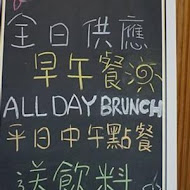 全日供應
早午餐
ALL DAY BRUNCH
平日中午點餐
送飲料